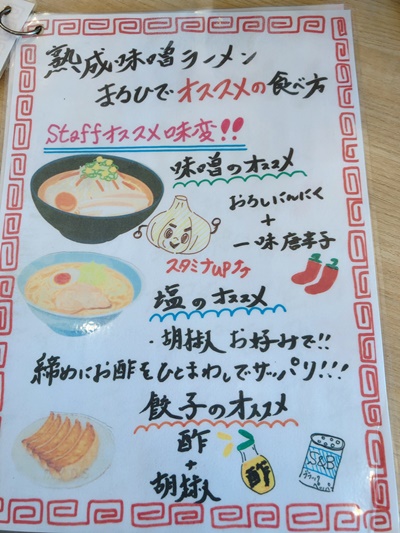 熟成味噌ラーメン
まるひでオススメの食べ方
Staffオススメ味変!!
味噌のオススメ
おろしにんにく
+
一味唐辛子
スタミナUP
塩のオススメ
・胡椒 お好みで!!
締めにお酢をひとまわしでサッパリ!!!
餃子のオススメ
酢
+
胡椒
酢
S&B